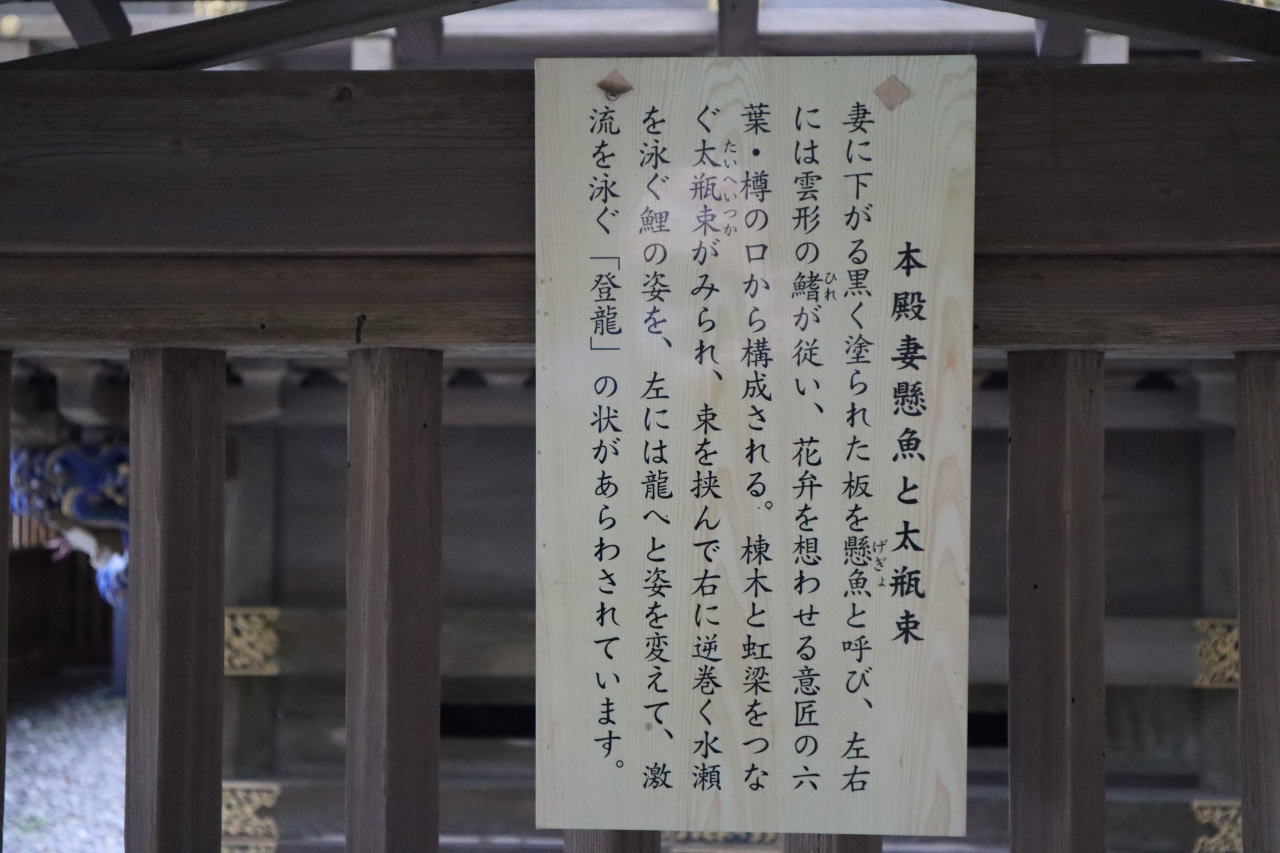 本殿妻懸魚と太瓶束
妻に下がる黒く塗られた板を懸魚と呼び、左右
げぎょ
には雲形の鰭が従い、花弁を想わせる意匠の六
ひれ
葉・樽の口から構成される。棟木と虹梁をつな
ぐ太瓶束がみられ、束を挟んで右に逆巻く水瀬
たいへいつか
を泳ぐ鯉の姿を、左には龍へと姿を変えて、激
流を泳ぐ「登龍」の状があらわされています。